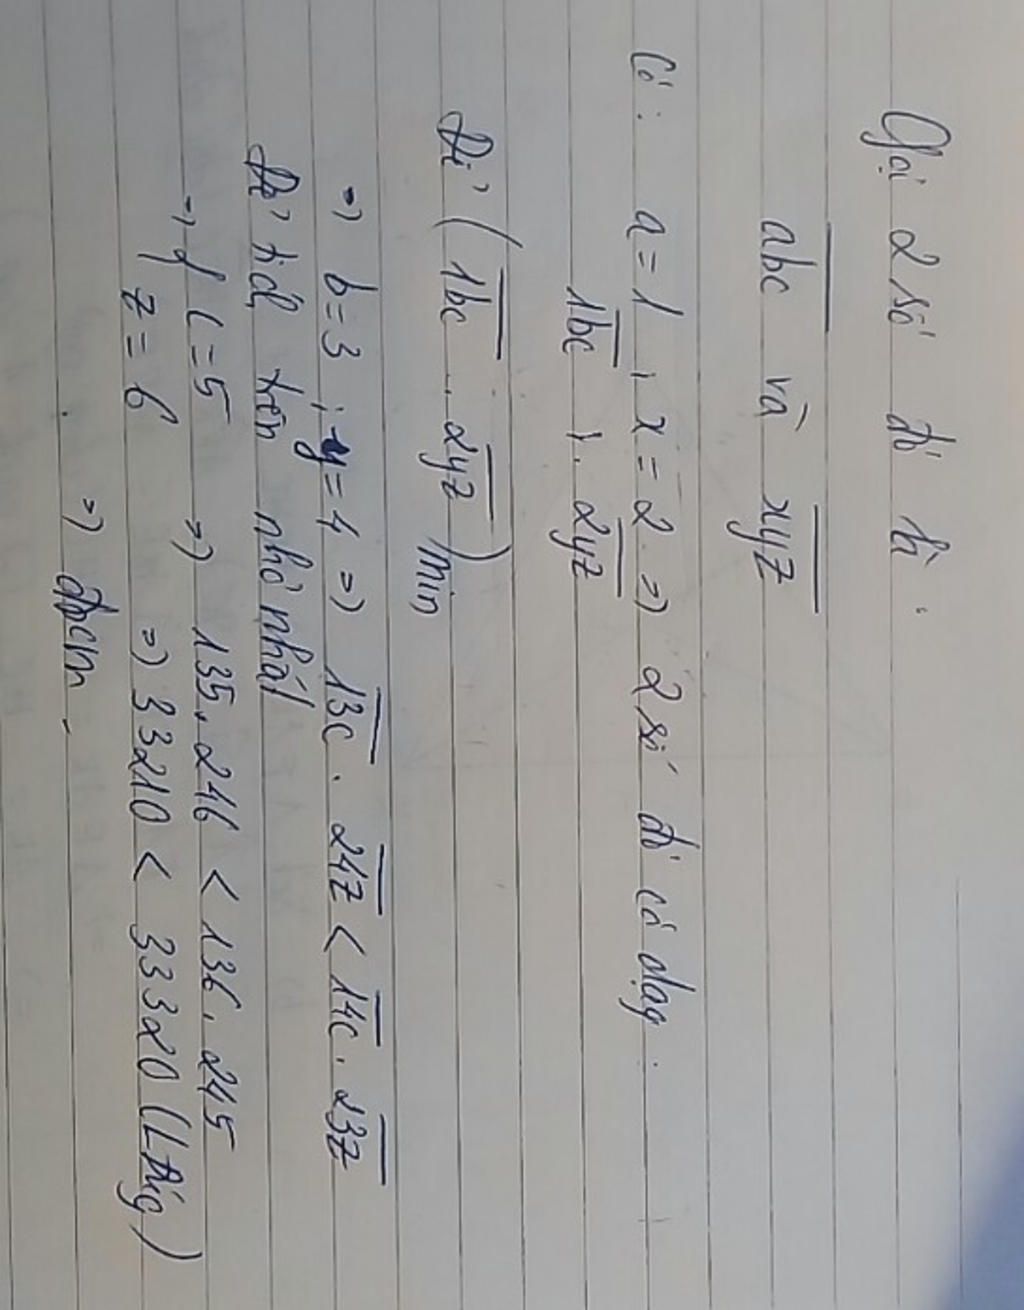 Gọi 2 số đó là :
abc và xyz
Có : a = 1 , x = 2 . => 2 số đó có dạng :
1bc ; . 2yz
Để ( 1bc . 2yz ) min
=> b = 3 ; y = 4 => 13c . 24z < 14c . 23z
Để tích trên nhỏ nhất
=> { c = 5 => 135 . 246 < 136 . 245
z = 6 => 33210 < 33320 (Lđúg)
=> đpcm .